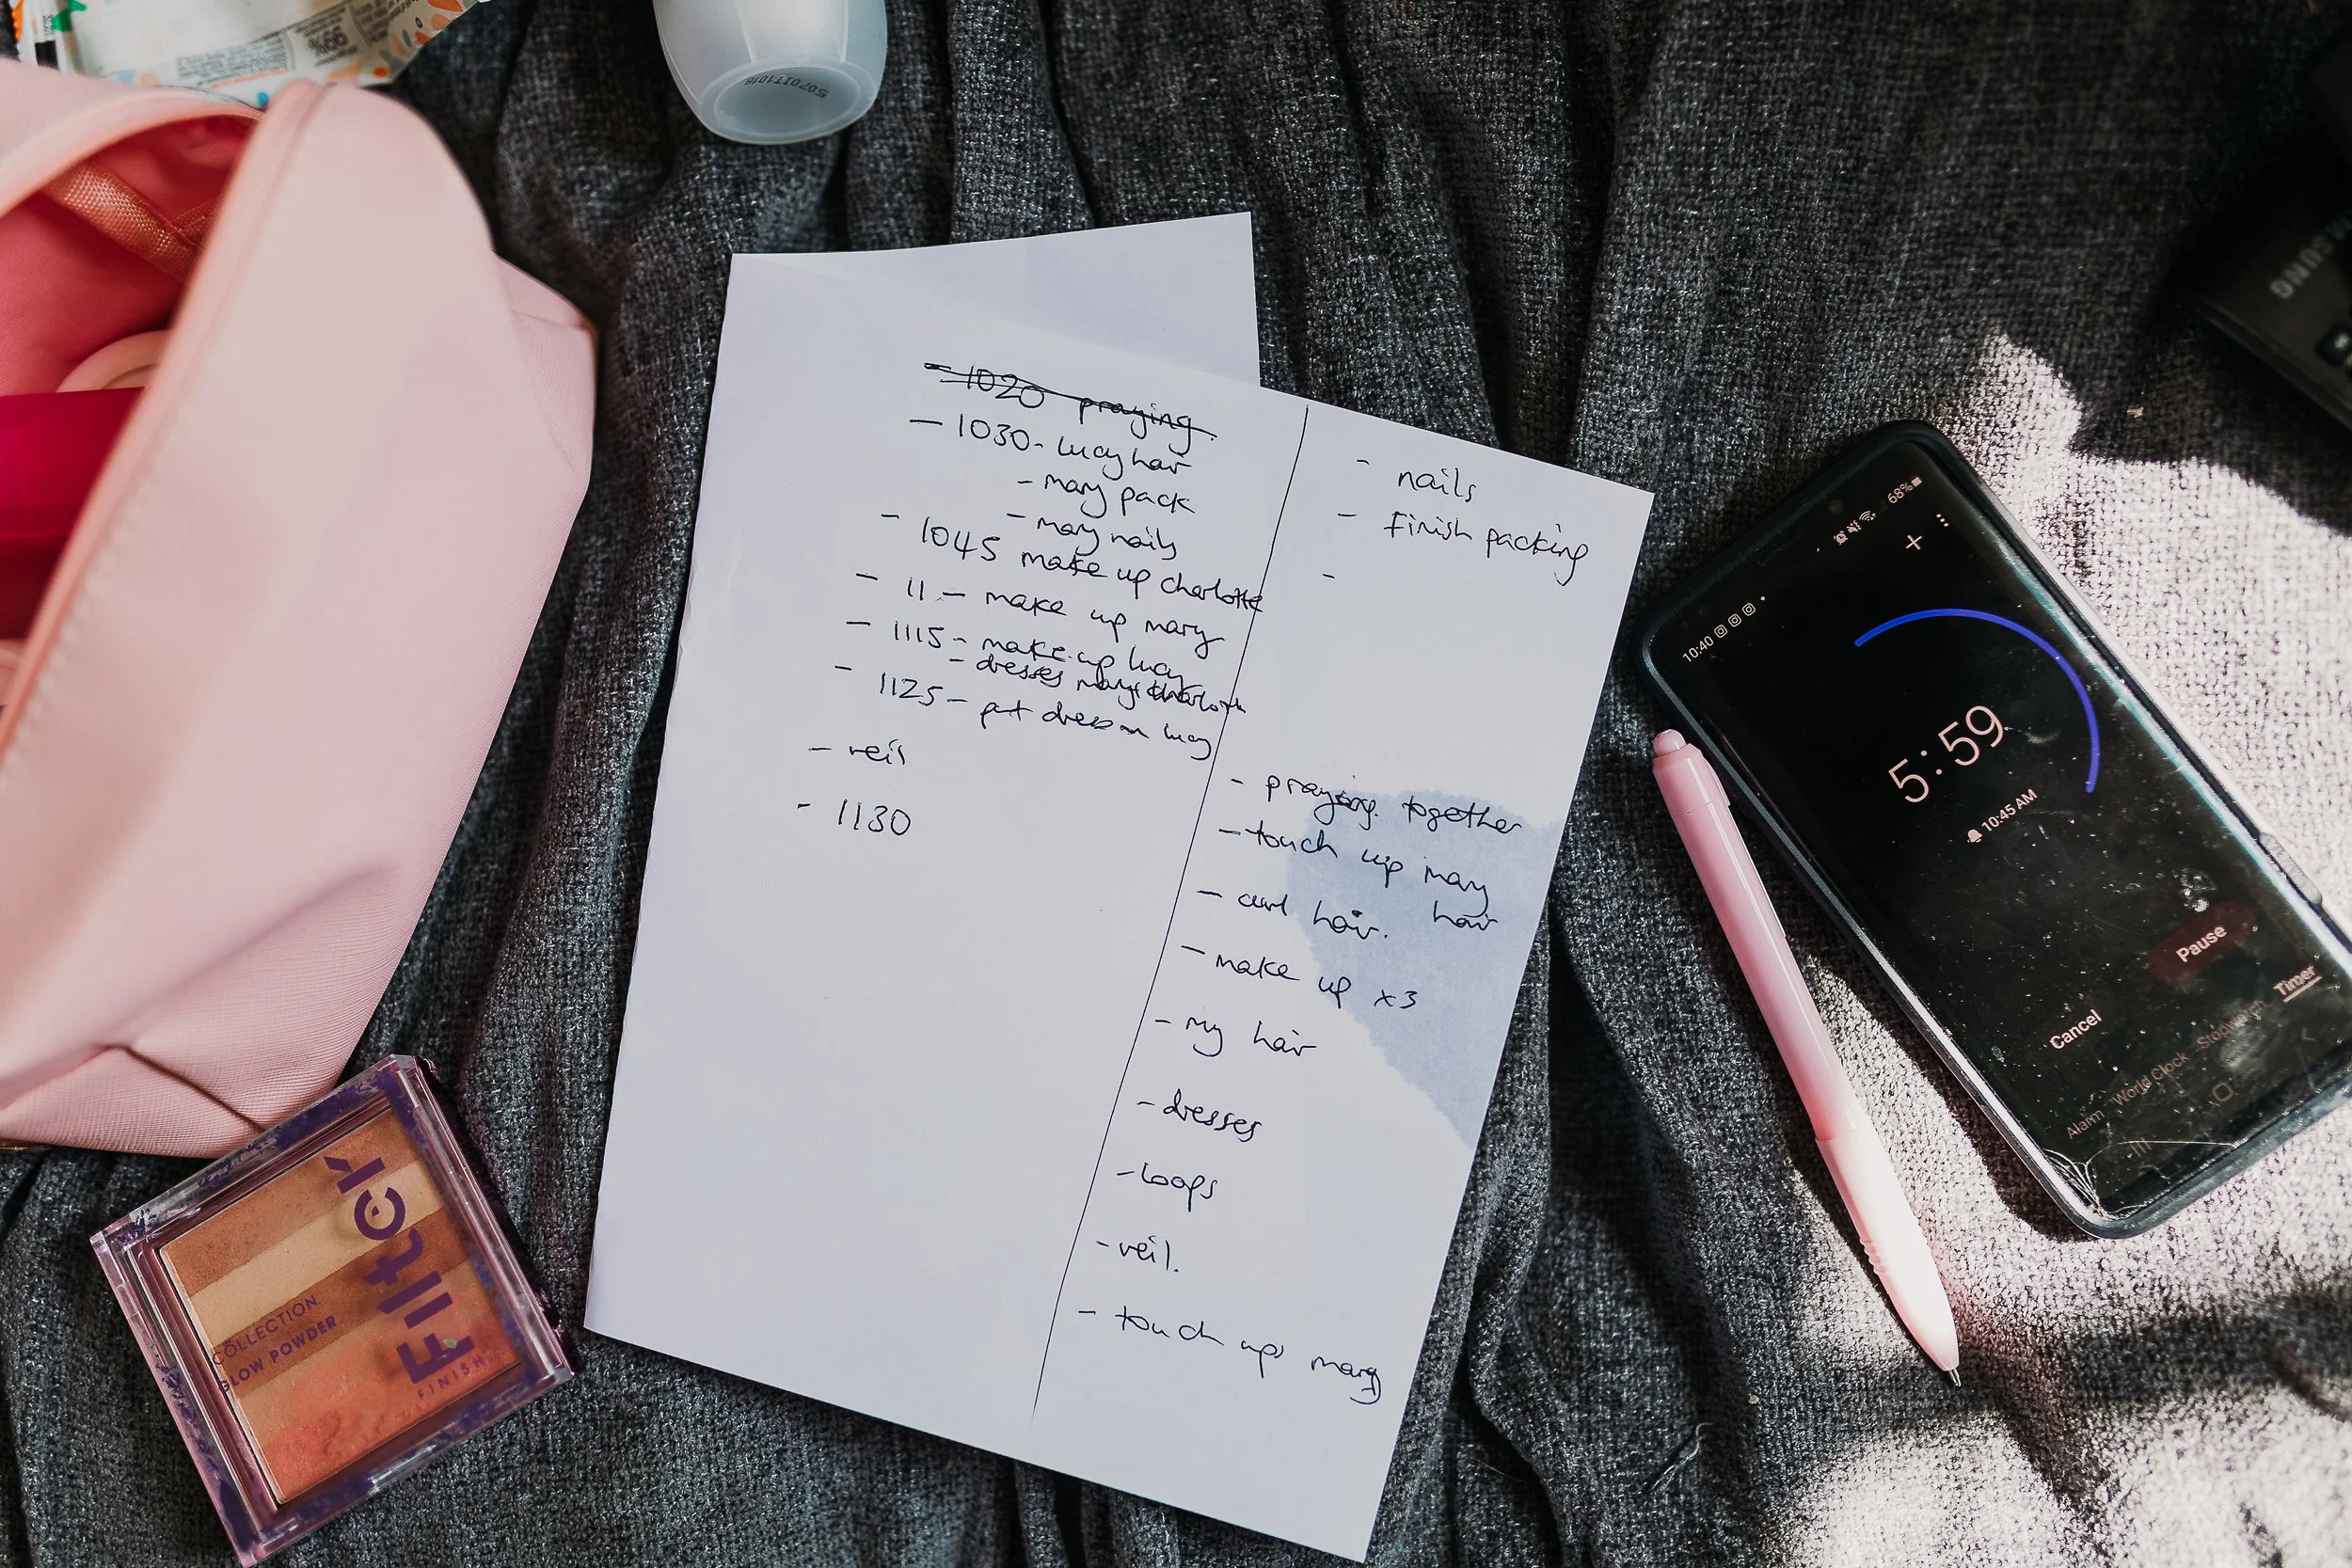 - 1020 praying.
- 1030 - lucy hair
- mary pack
- mary nails
- 1045 make up charlotte
- 11 - make up mary
- 1115 - make up lucy
- dresses mary charlotte
- 1125 - put dress on lucy
- veil
- 1130
- nails
- finish packing
-
- praying. together
- touch up mary
hair
- curl hair.
- make up x3
- my hair
- dresses
- loops
- veil.
- touch ups mary
10:40
68%
5:59
10:45 AM
Pause
Cancel
Alarm World Clock Stopwatch Timer
COLLECTION.
GLOW POWDER
Filter
FINISH
SAMSUNG
99%